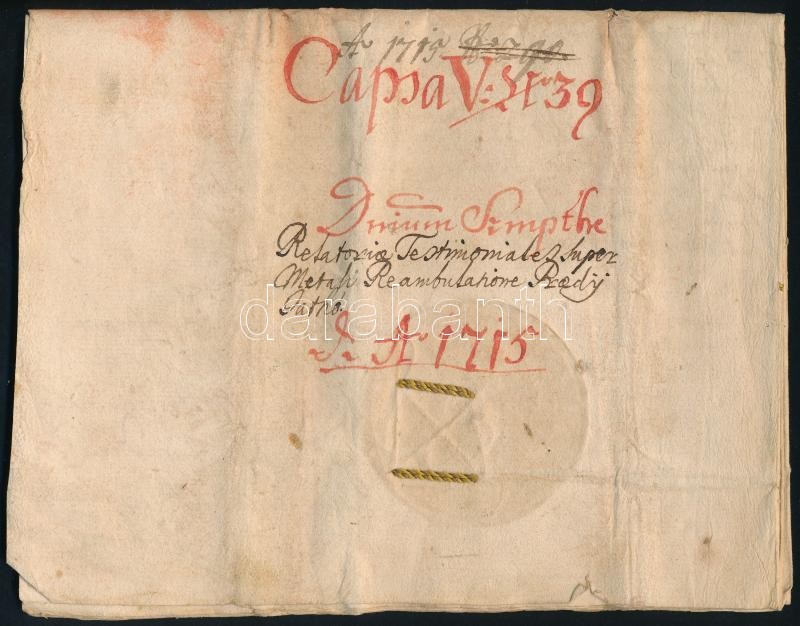 Aº 1715
Capsa V: Nº 39
Dnium Sempthe
Relatoriæ Testimoniales super
Metali Reambulatione Prædij
Gatho.
de Aº 1715
darabanth